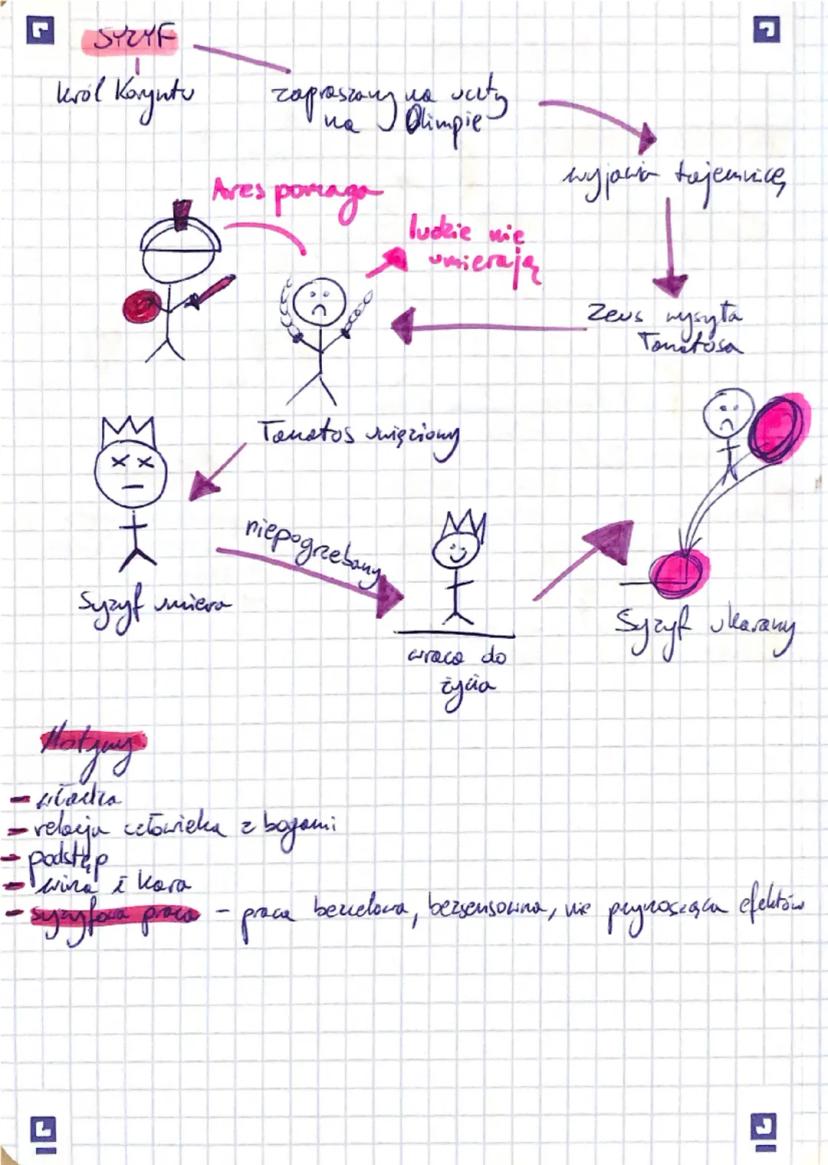 SYZYF
król Koryntu
zapraszany na uczty
na Olimpie
wyjawia tajemnicę
Ares pomaga
ludzie nie
umierają
Zeus wysyła
Tanatosa
Tanatos uwięziony
niepogrzebany
Syzyf umiera
wraca do
życia
Syzyf ukarany
Motywy
- władca
- relacja człowieka z bogami
- podstęp
- wina i kara
- syzyfowa praca - praca bezcelowa, bezsensowna, nie przynosząca efektów